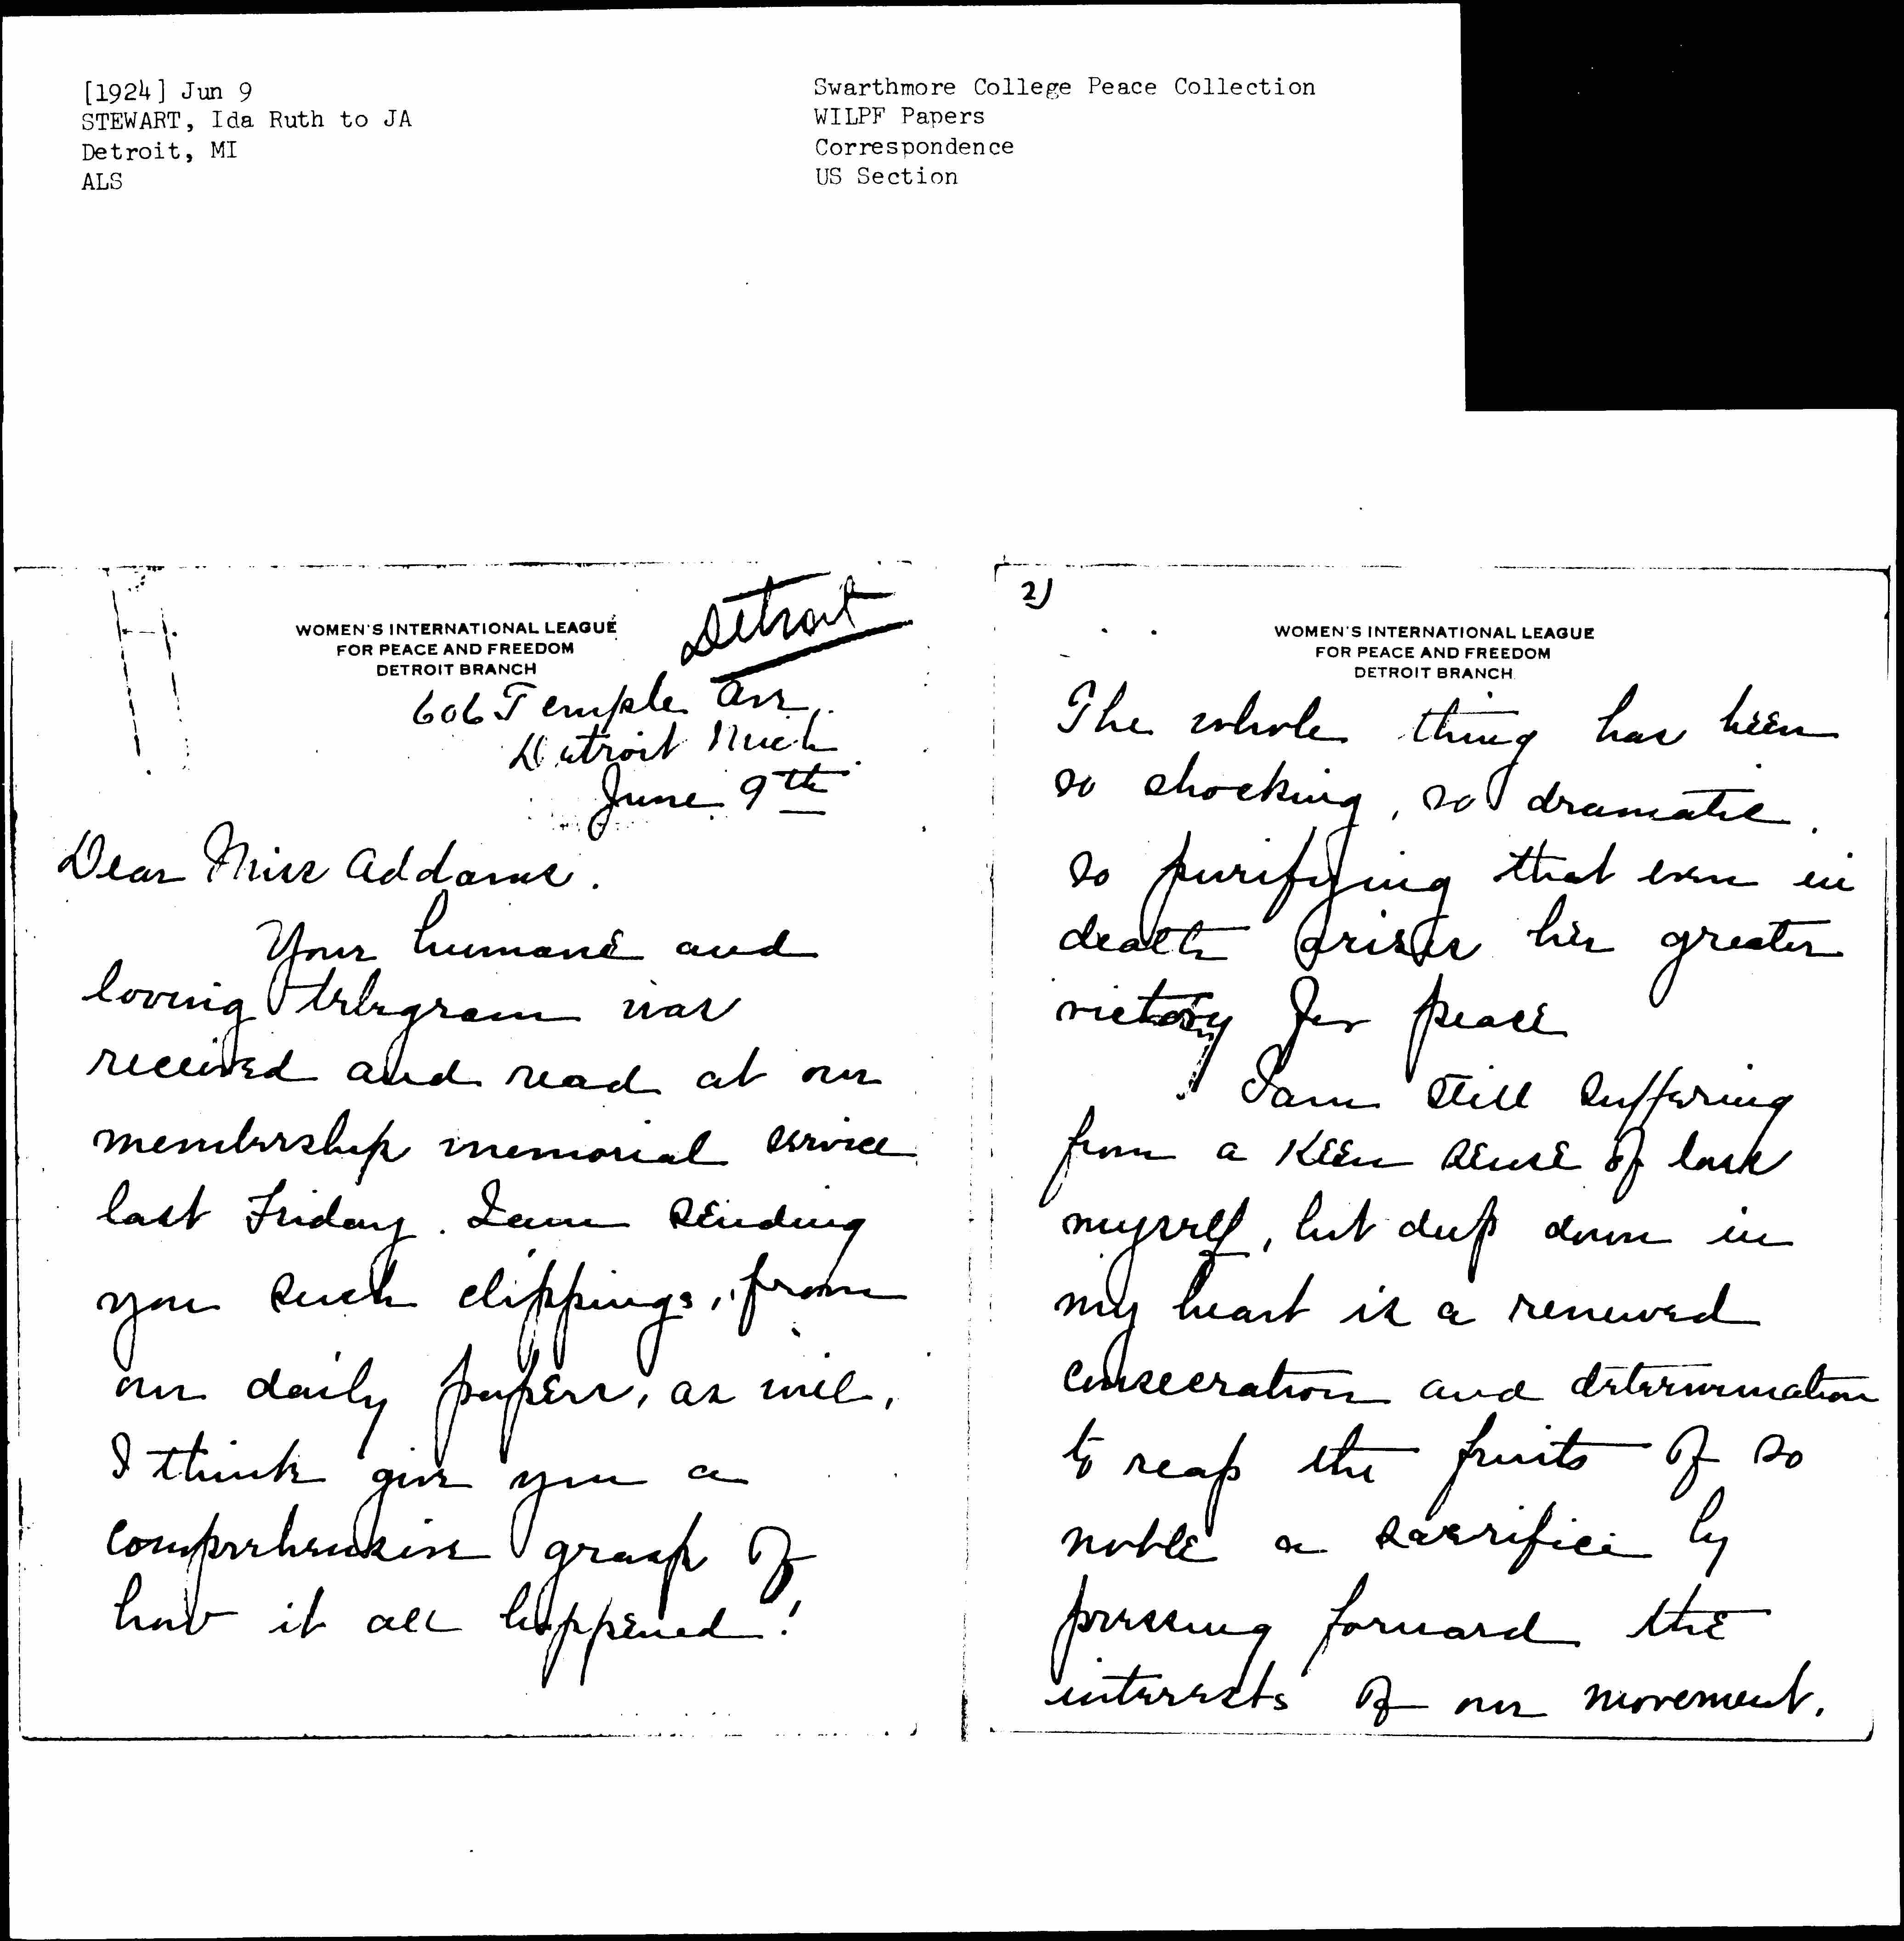 [1924] Jun 9
STEWART, Ida Ruth to JA
Detroit, MI
ALS
Swarthmore College Peace Collection
WILPF Papers
Correspondence
US Section
Detroit
WOMEN'S INTERNATIONAL LEAGUE
FOR PEACE AND FREEDOM
DETROIT BRANCH
606 Temple Ave.
Detroit Mich
June 9th
Dear Miss Addams.
Your humane and
loving telegram was
received and read at our
membership memorial service
last Friday. I am sending
you such clippings, from
our daily papers, as will,
I think give you a
comprehensive grasp of
how it all happened!
2)
WOMEN'S INTERNATIONAL LEAGUE
FOR PEACE AND FREEDOM
DETROIT BRANCH
The whole thing has been
so shocking, so dramatic,
so purifying that even in
death arises her greater
victory for peace
I am still suffering
from a keen sense of loss
myself, but deep down in
my heart is a renewed
consecration and determination
to reap the fruits of so
noble a sacrifice by
pressing forward the
interests of our movement.